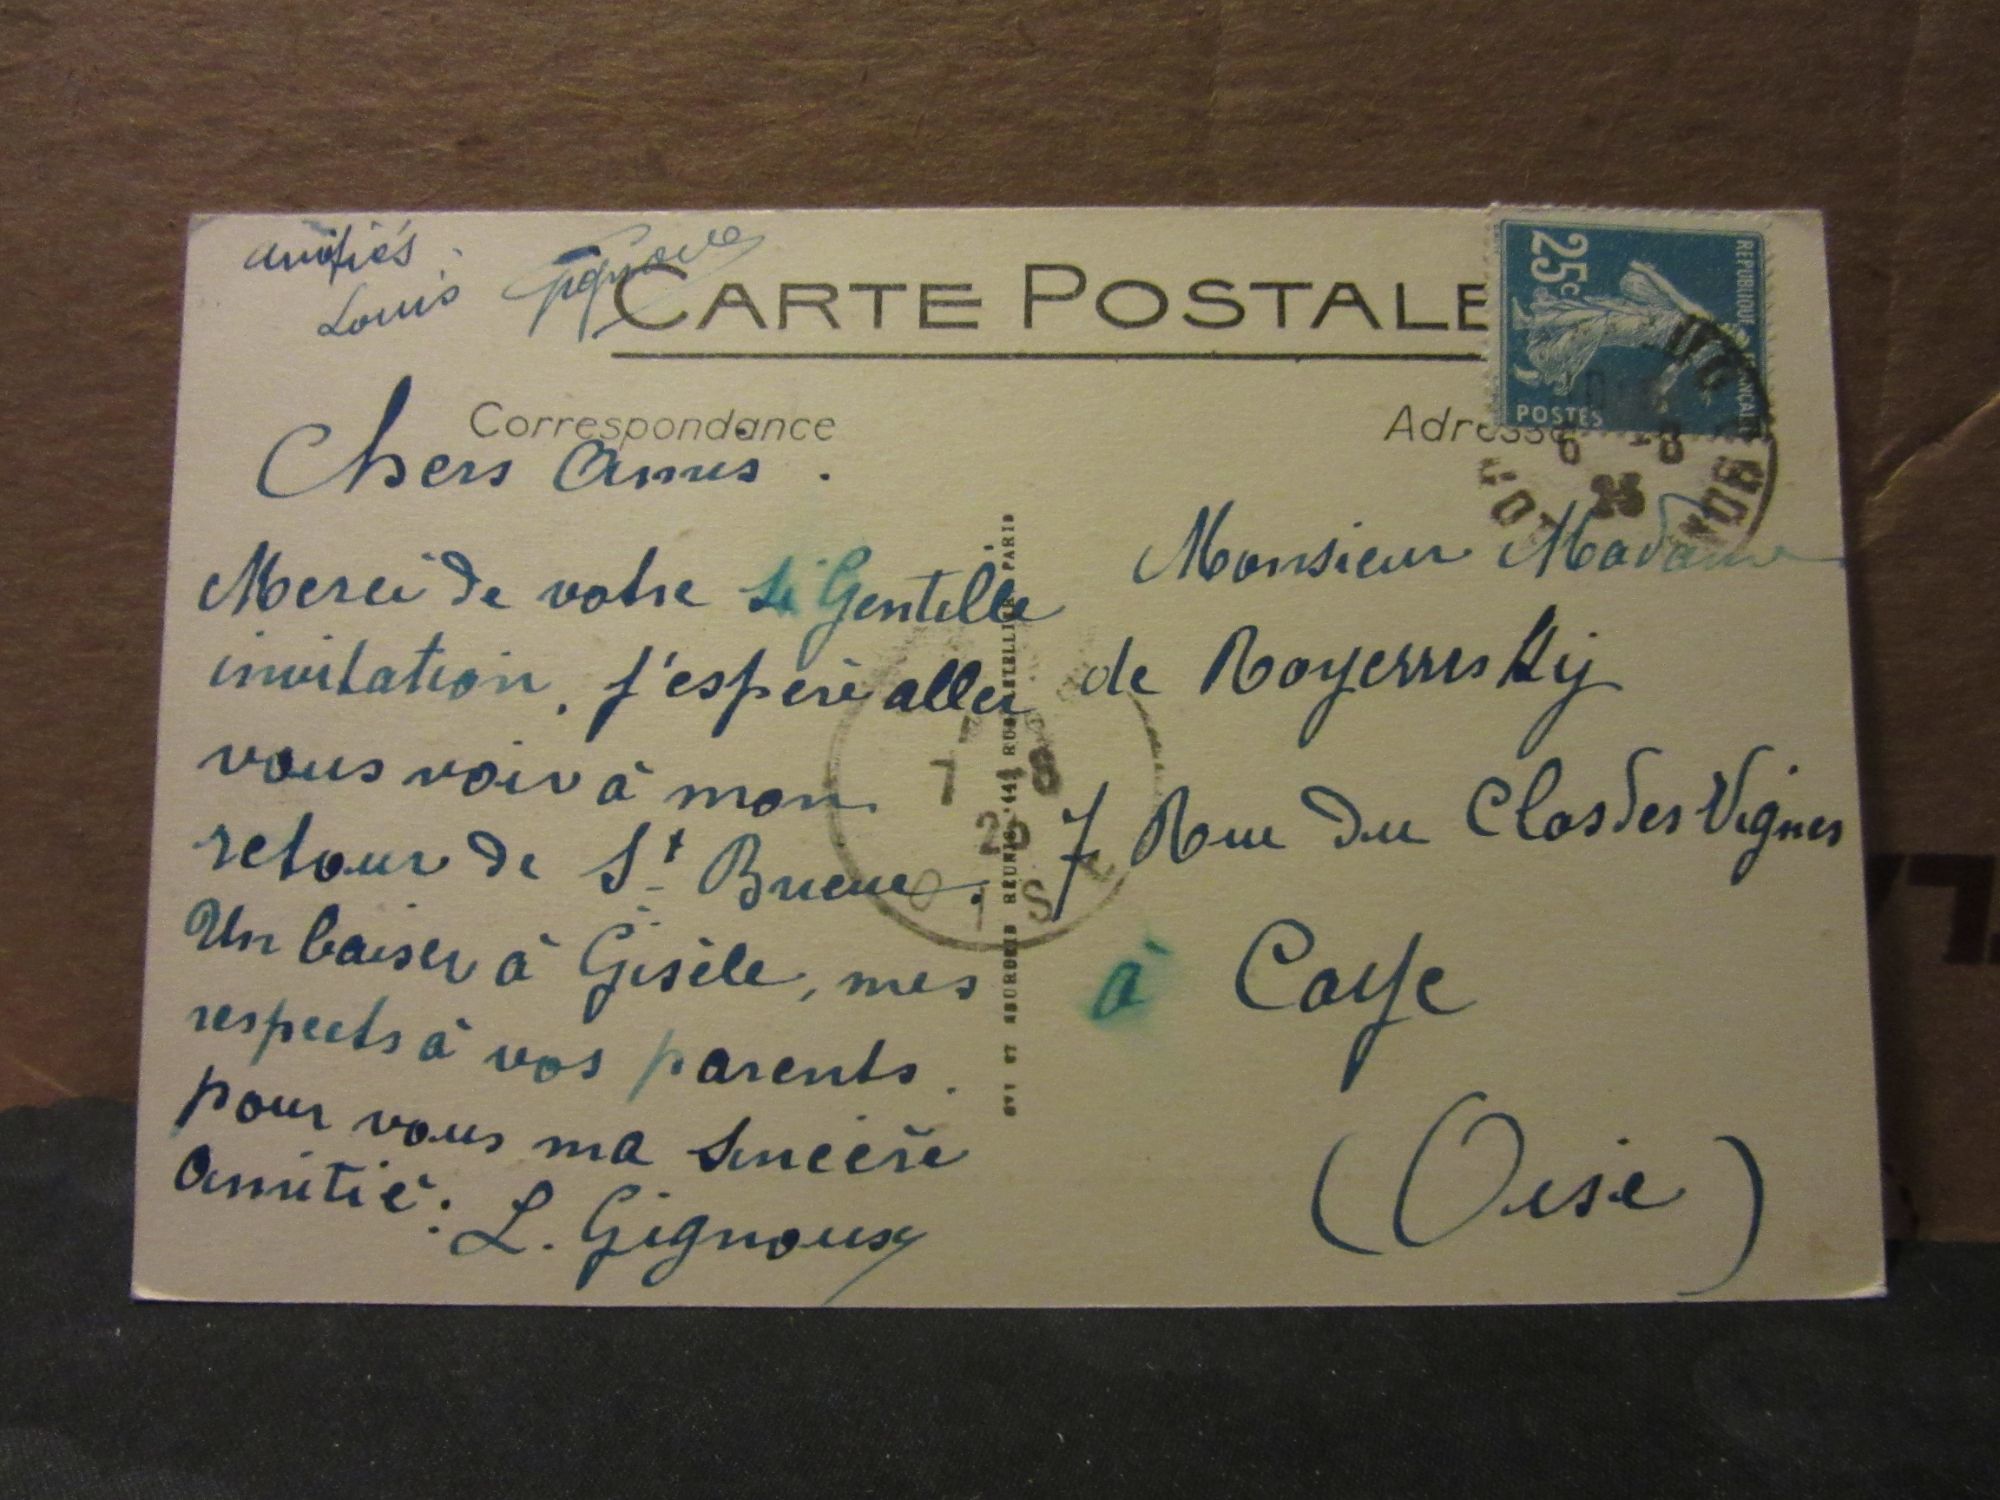 amitiés.
Louis Gignoux
CARTE POSTALE
Correspondance
Adresse
25c
POSTES
Chers Amis.
Merci de votre si Gentille
invitation, j'espère aller
vous voir à mon
retour de St Brieuc.
Un baiser à Gisèle, mes
respects à vos parents.
pour vous ma sincère
amitié:
L. Gignoux
7 -8
25
OISE
Monsieur Madame
de
7 Rue du Clos des Vignes
à Coye
(Oise)
6 -8
25